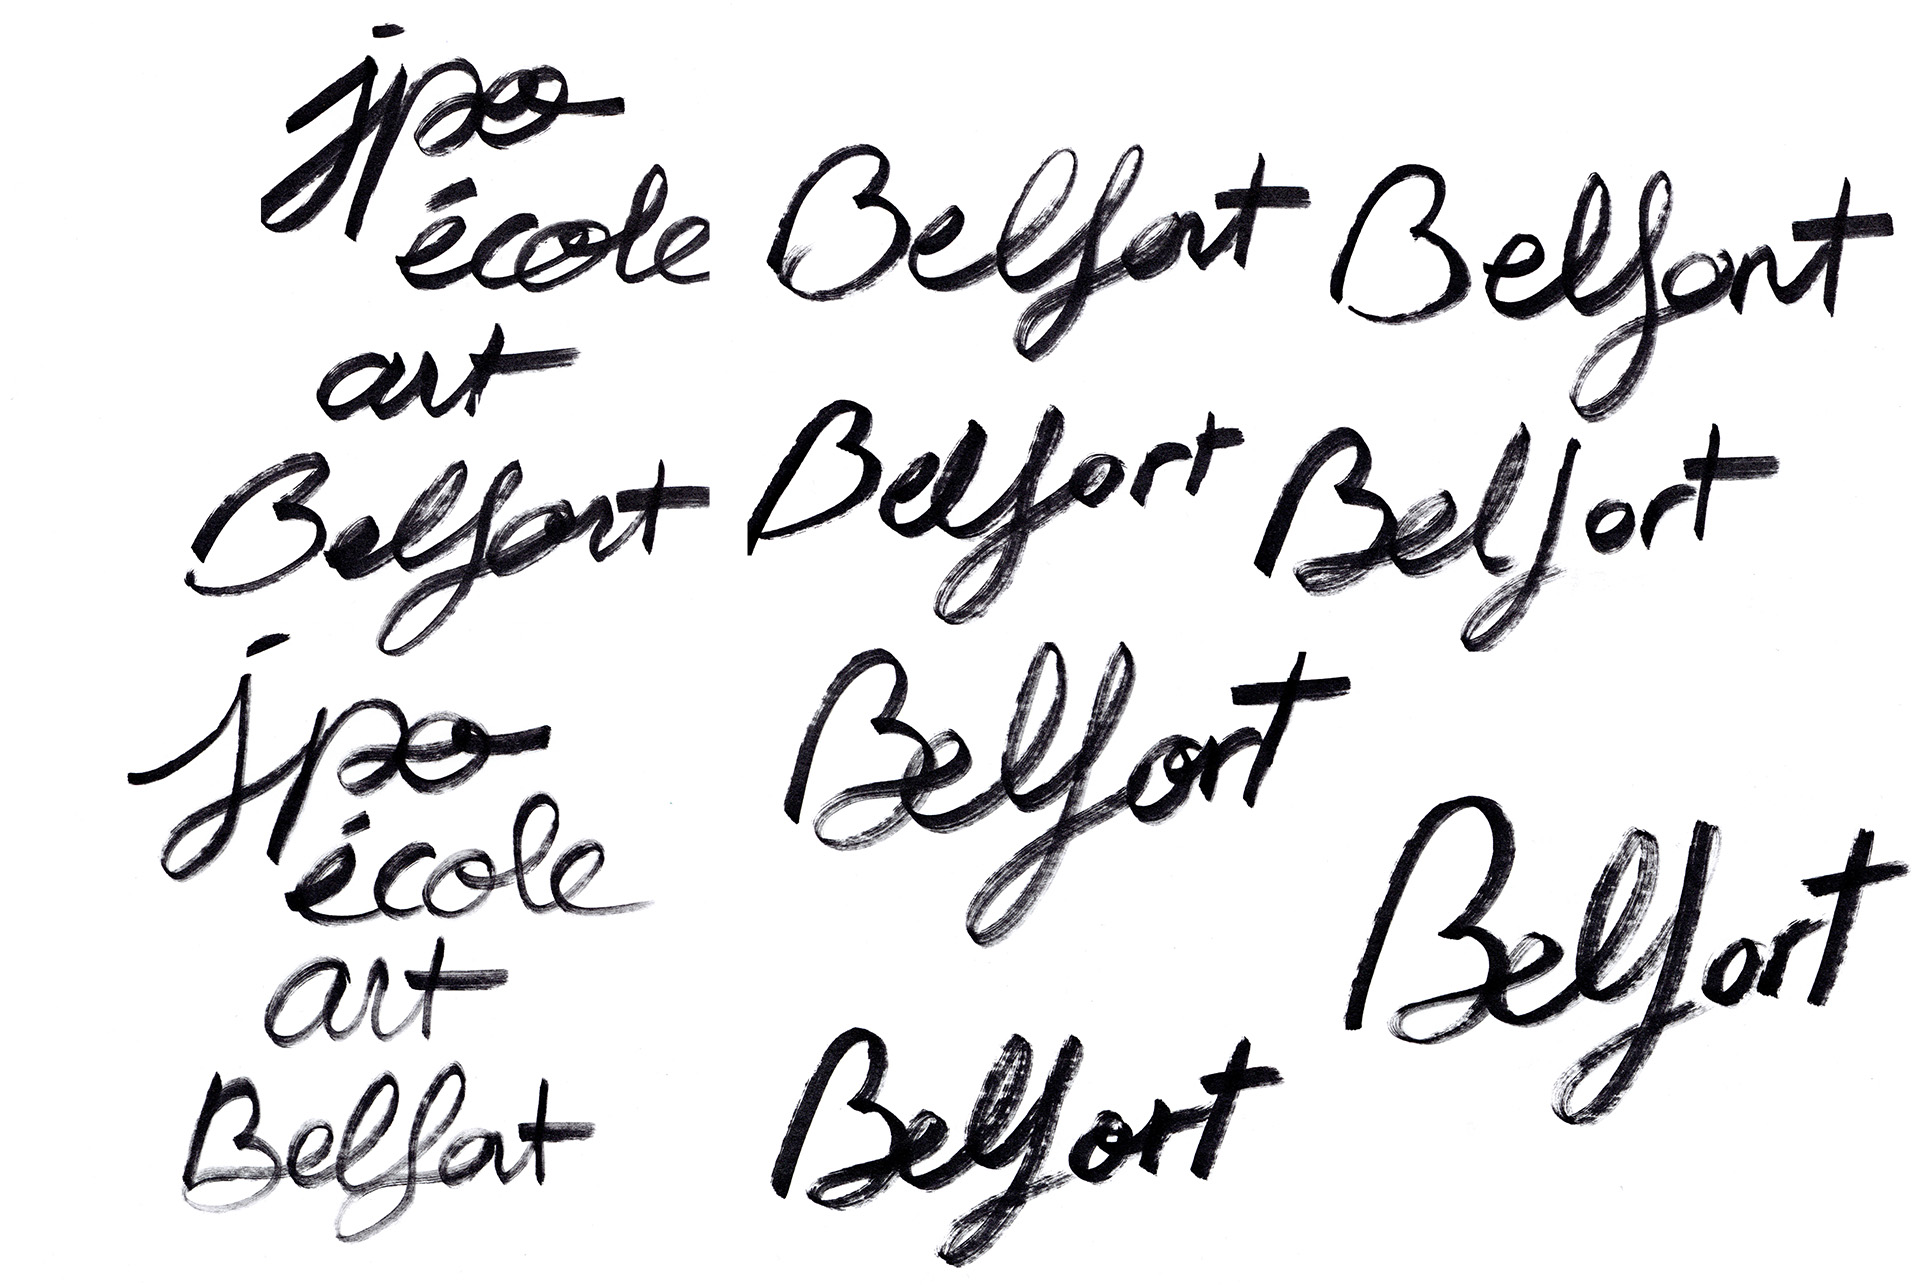 jpo
école
art
Belfort
jpo
école
art
Belfort
Belfort
Belfort
Belfort
Belfort
Belfort
Belfort
Belfort